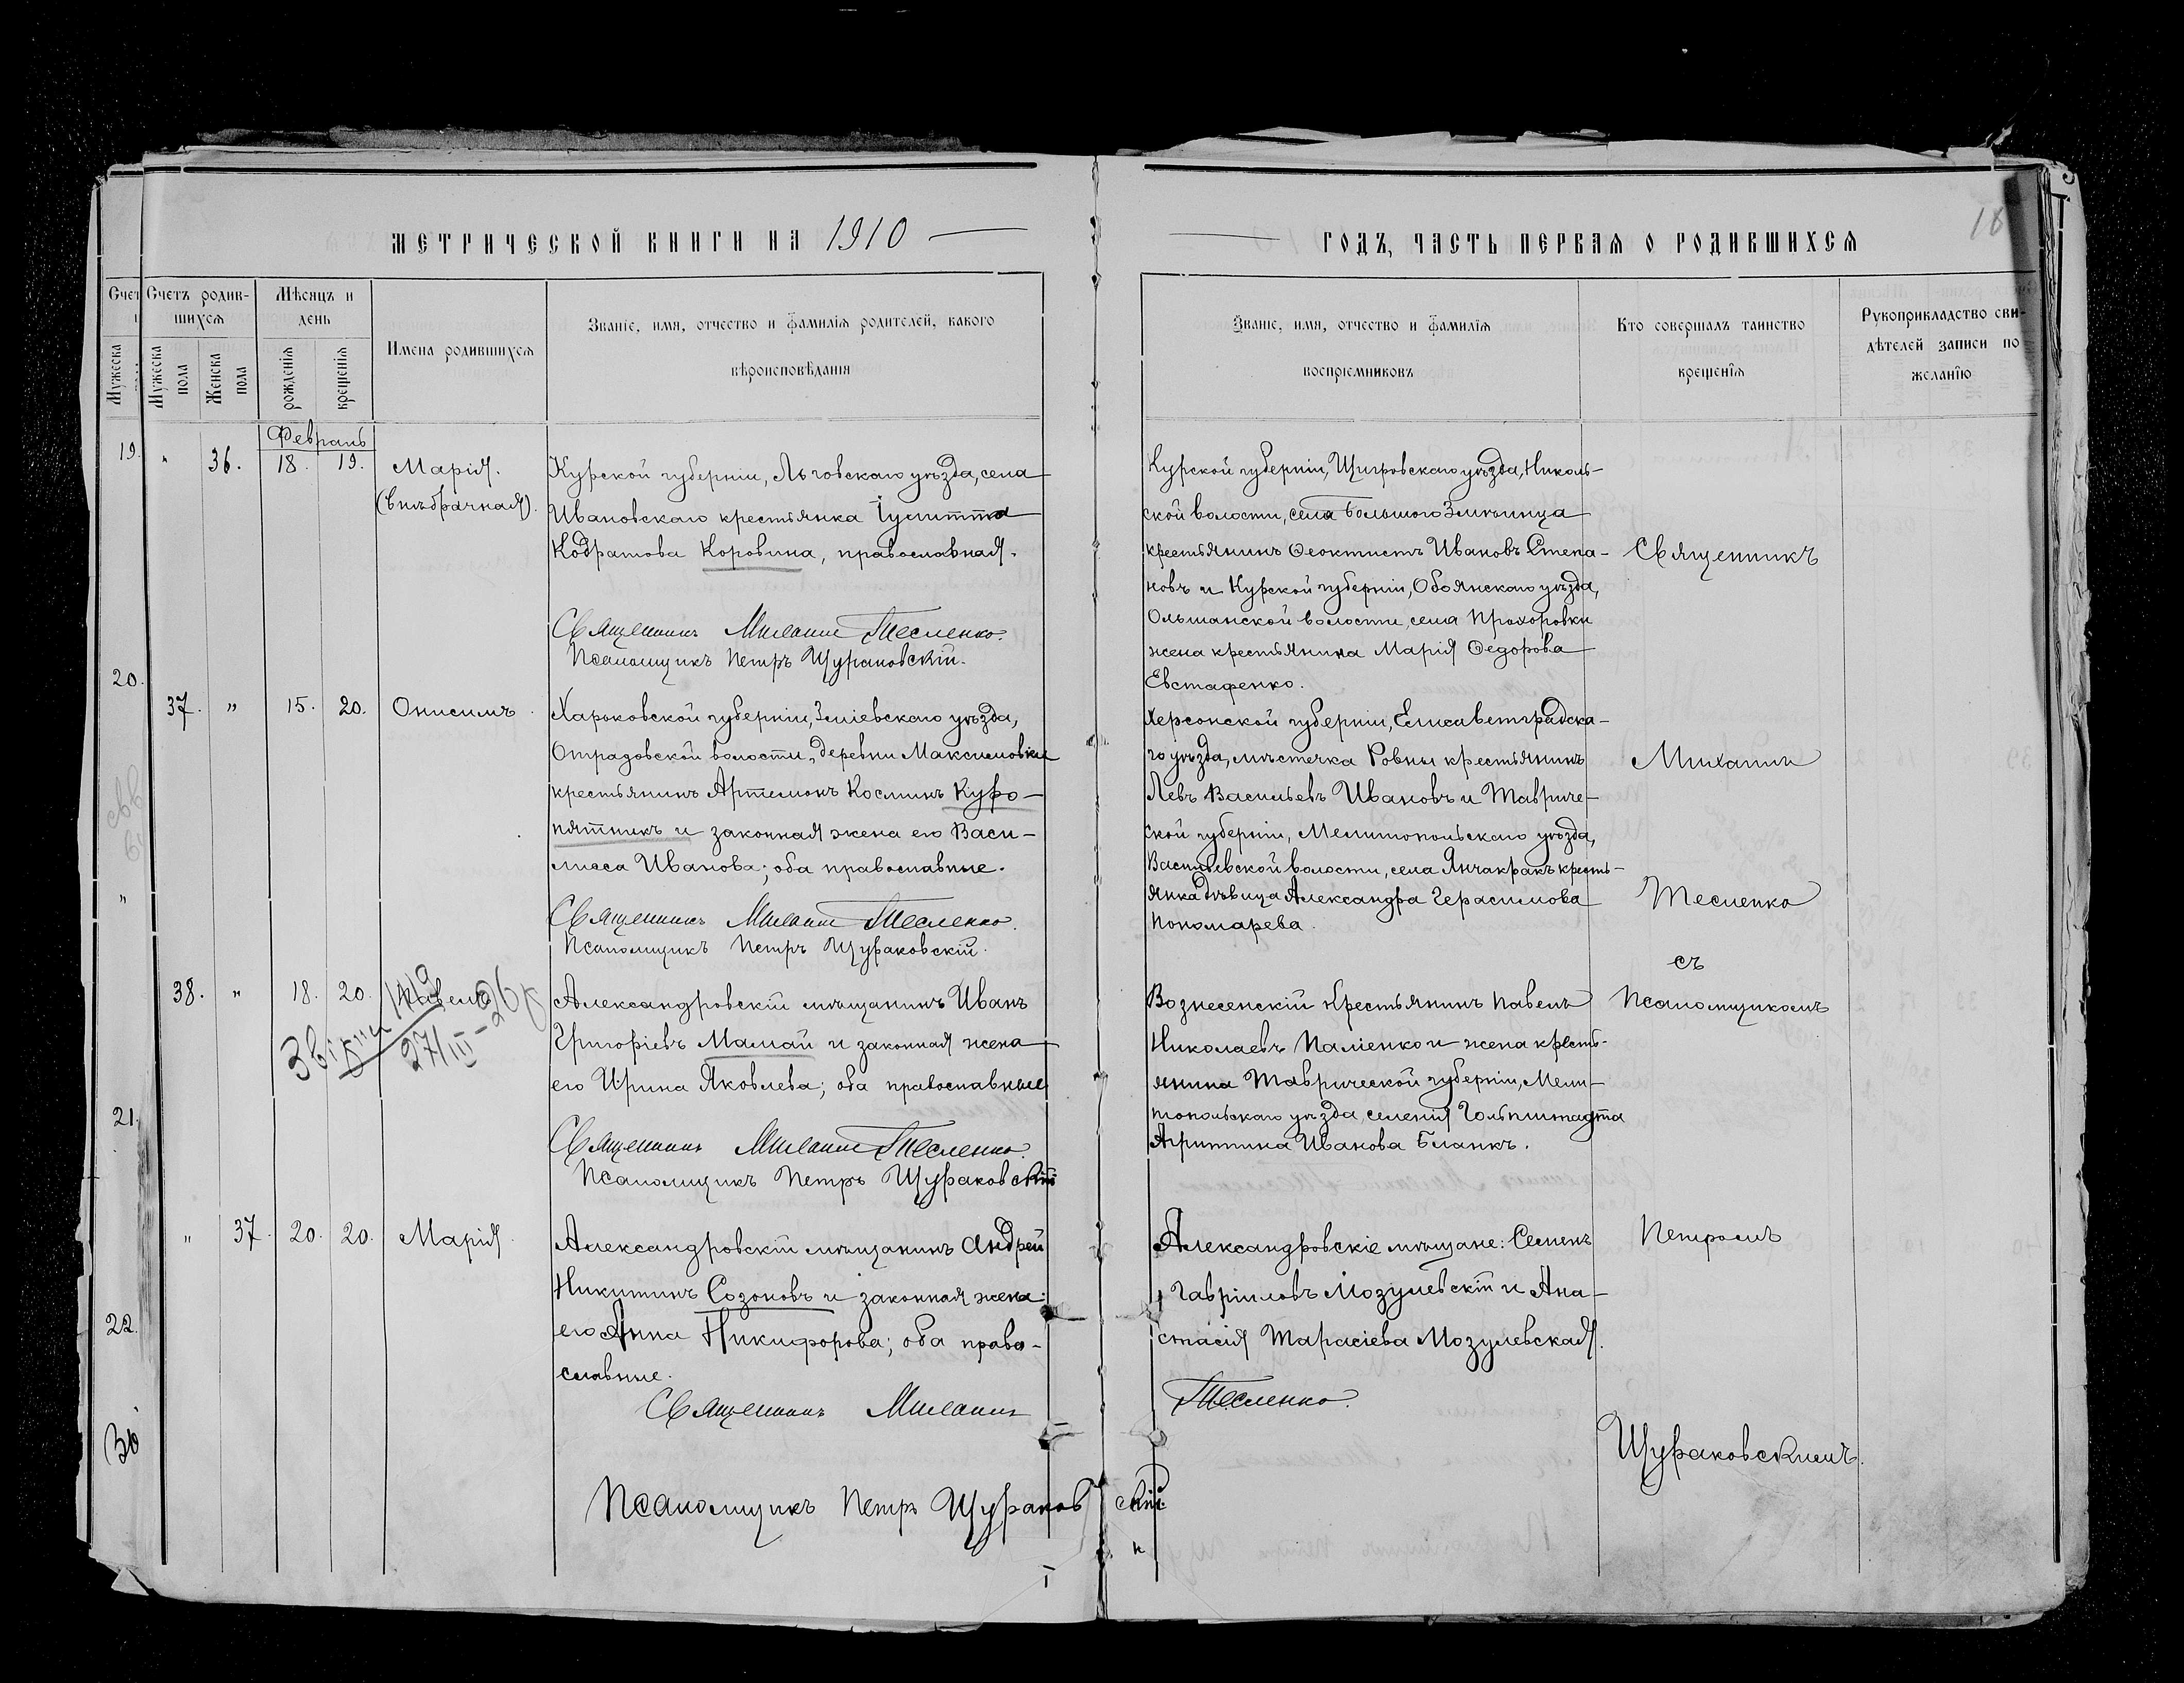 МЕТРИЧЕСКОЙ КНИГИ НА 1910
Счетъ родив-
шихся
Мѣсяцъ и
день
Мужеска
пола
Женска
пола
рожденія
крещенія
Имена родившихся
Званіе, имя, отчество и фамилія родителей, какого
вѣроисповѣданія
Февраль
19.
" 36. 18. 19. Марія.
(внѣбрачная).
Курской губерніи, Льговскаго уѣзда, села
Ивановскаго крестьянка Іулитта
Кодратова Коровина, православная.
Священникъ Михаилъ Тесленко.
Псаломщикъ Петръ Щураковскій.
20.
37. " 15. 20. Онисимъ
Харьковской губерніи, Зміевскаго уѣзда,
Отрадовской волости, деревни Максимовки
крестьянинъ Артемонъ Косминъ Куро-
пятникъ и законная жена его Васи-
лисса Иванова; оба православные.
Священникъ Михаилъ Тесленко.
Псаломщикъ Петръ Щураковскій.
38. " 18. 20. Павелъ
27/III-
Александровскій мѣщанинъ Иванъ
Григоріевъ Мамай и законная жена
его Ирина Яковлева; оба православные
Священникъ Михаилъ Тесленко.
Псаломщикъ Петръ Щураковскій
21.
" 37. 20. 20. Марія
Александровскій мѣщанинъ Андрей
Никитинъ Созоновъ и законная жена
его Анна Никифорова; оба право-
славные.
22.
Священникъ Михаилъ Тесленко.
Псаломщикъ Петръ Щураковскій
ГОДЪ, ЧАСТЬ ПЕРВАЯ О РОДИВШИХСЯ
Званіе, имя, отчество и фамилія
воспріемниковъ
Кто совершалъ таинство
крещенія
Рукоприкладство сви-
дѣтелей записи по
желанію
Курской губерніи, Щигровскаго уѣзда, Николь-
ской волости, села Большого Змѣинца
крестьянинъ Ѳеоктистъ Ивановъ Степа-
новъ и Курской губерніи, Обоянскаго уѣзда,
Ольшанской волости, села Прохоровки
жена крестьянина Марія Ѳедорова
Евстафенко.
Херсонской губерніи, Елисаветградска-
го уѣзда, мѣстечка Ровны крестьянинъ
Левъ Васильевъ Ивановъ и Тавриче-
ской губерніи, Мелитопольскаго уѣзда,
Васильевской волости, села Янчакракъ кресть-
янка дѣвица Александра Герасимова
Пономарева.
Вознесенскій крестьянинъ Павелъ
Николаевъ Паліенко и жена кресть-
янина Таврической губерніи, Мели-
топольскаго уѣзда, селенія Гольпштадта
Агриппина Иванова Бланкъ.
Александровскіе мѣщане: Семенъ
Гавріиловъ Мозулевскій и Ана-
стасія Тарасіева Мозулевская.
Священникъ
Михаилъ
Тесленко
съ
Псаломщикомъ
Петромъ
Щураковскимъ.